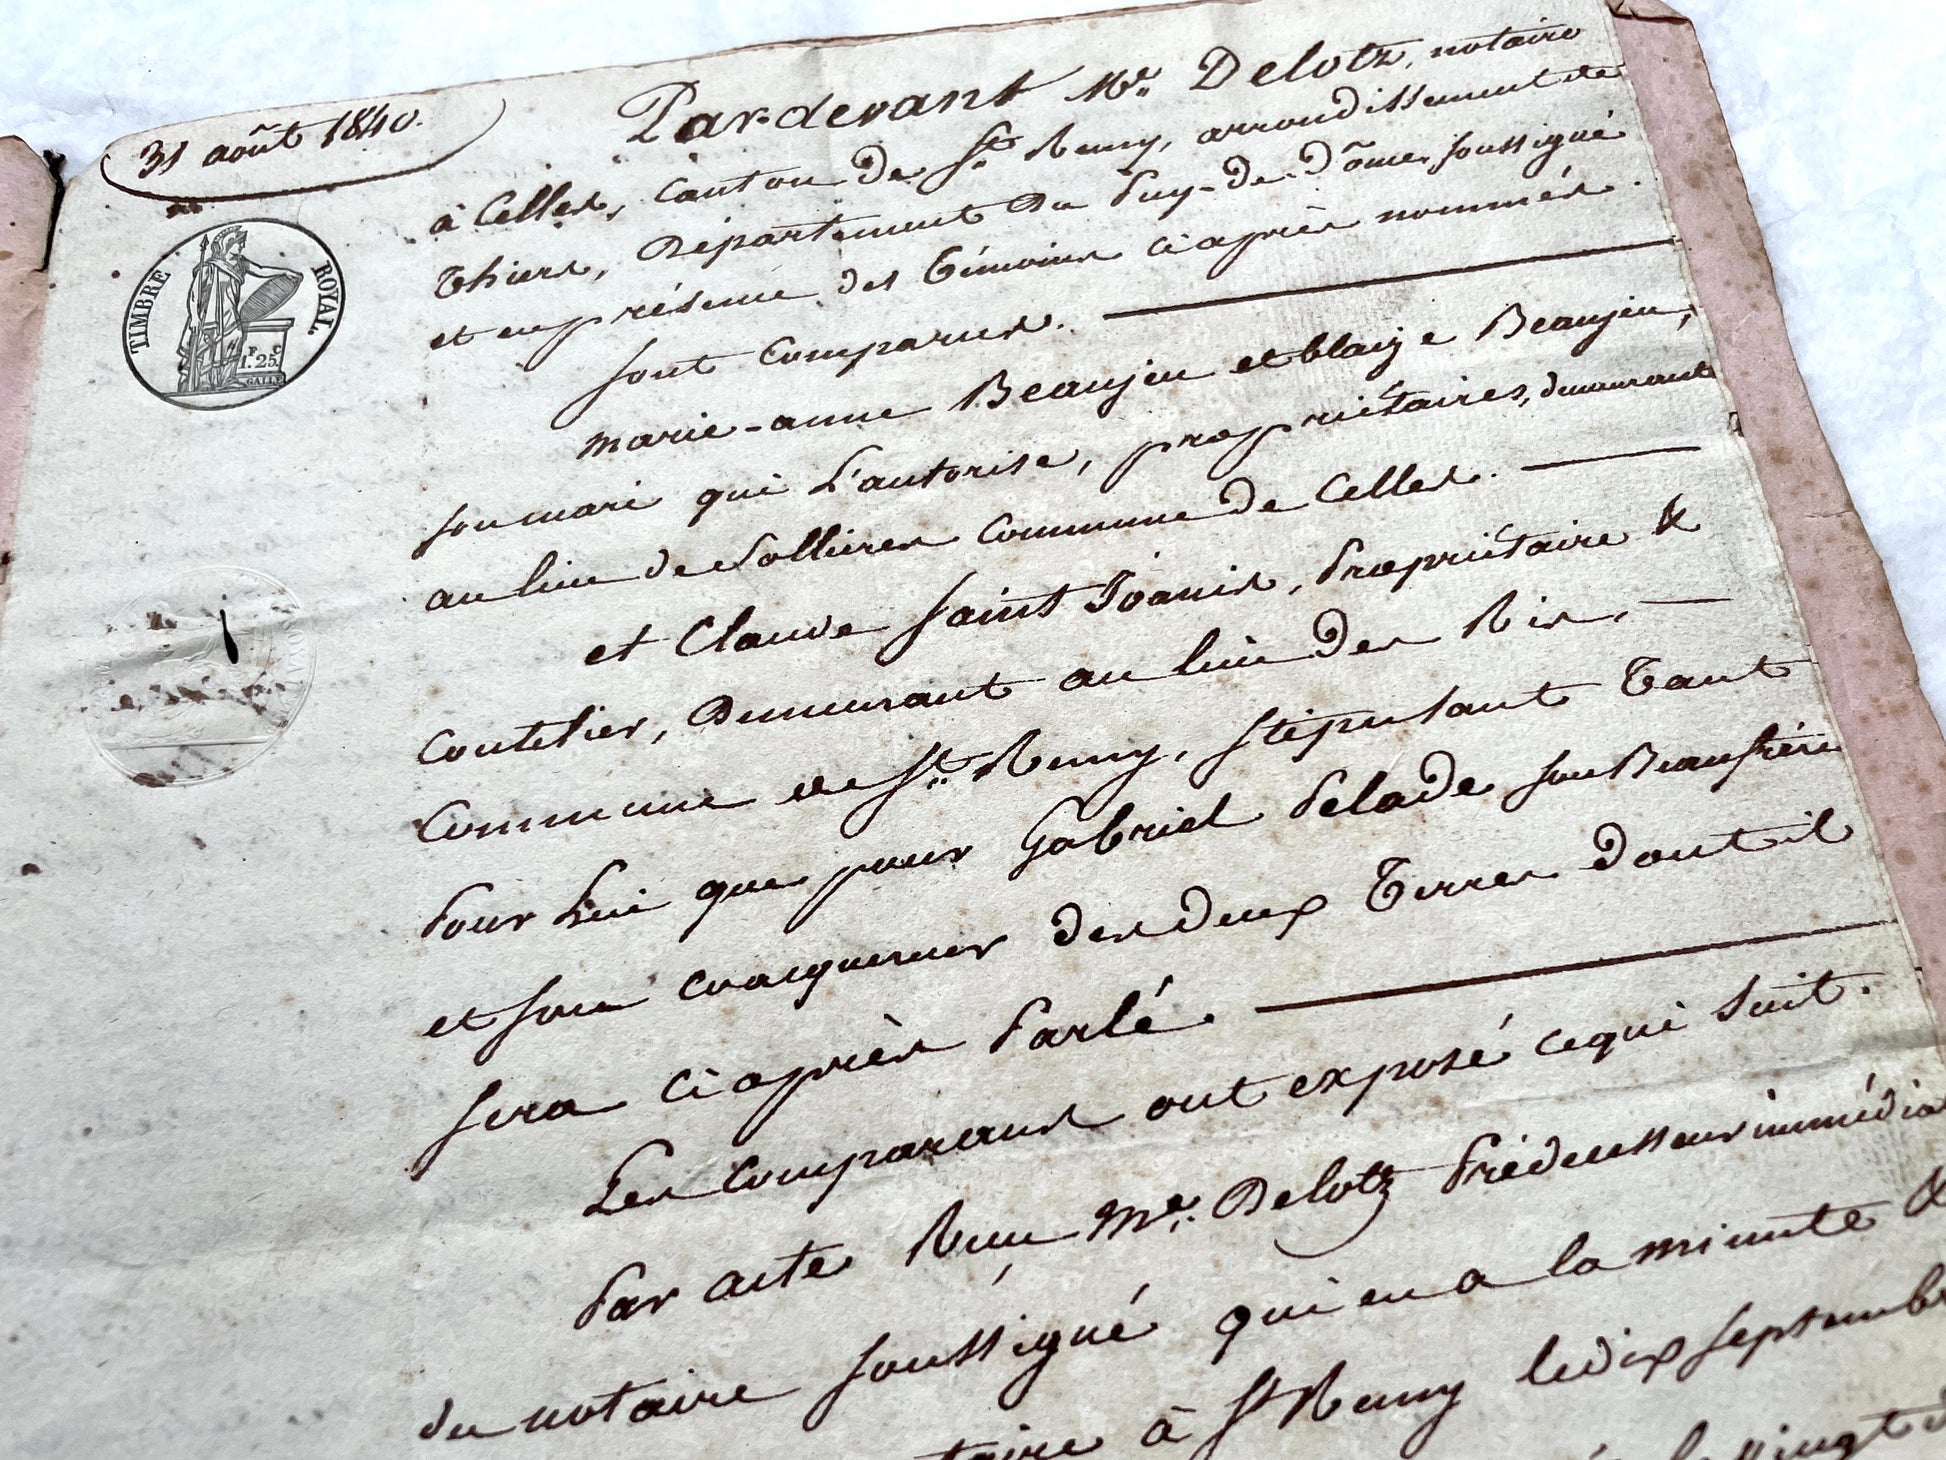 31 août 1840.
TIMBRE ROYAL.
1F. 25c
GALLE
Par-devant Me. Delotz, notaire
à Celles, Canton de St. Remy, arrondissement de
Thiers, Département du Puy-de-dôme, soussigné
et en présence des témoins ci après nommés.
sont Comparus.
marie-anne Beaujeu et blaize Beaujeu,
son mari qui L'autorise, propriétaires, demeurant
au lieu de Sollieres Commune de Celles.
et Claude Saint Joanis, Propriétaire &
Coutelier, Demeurant au lieu des Ris,
Commune de St. Remy, stipulant tant
Pour Lui que pour Gabriel Pelade son Beaufrère
et son coacquereur des deux Terres dont il
sera ci après Parlé.
Les Comparans ont exposé ce qui suit.
Par acte Recu Me. Delotz Prédecesseur immédia
du notaire soussigné qui en a la minute &
taire à St Remy le dix septembr
vingt d